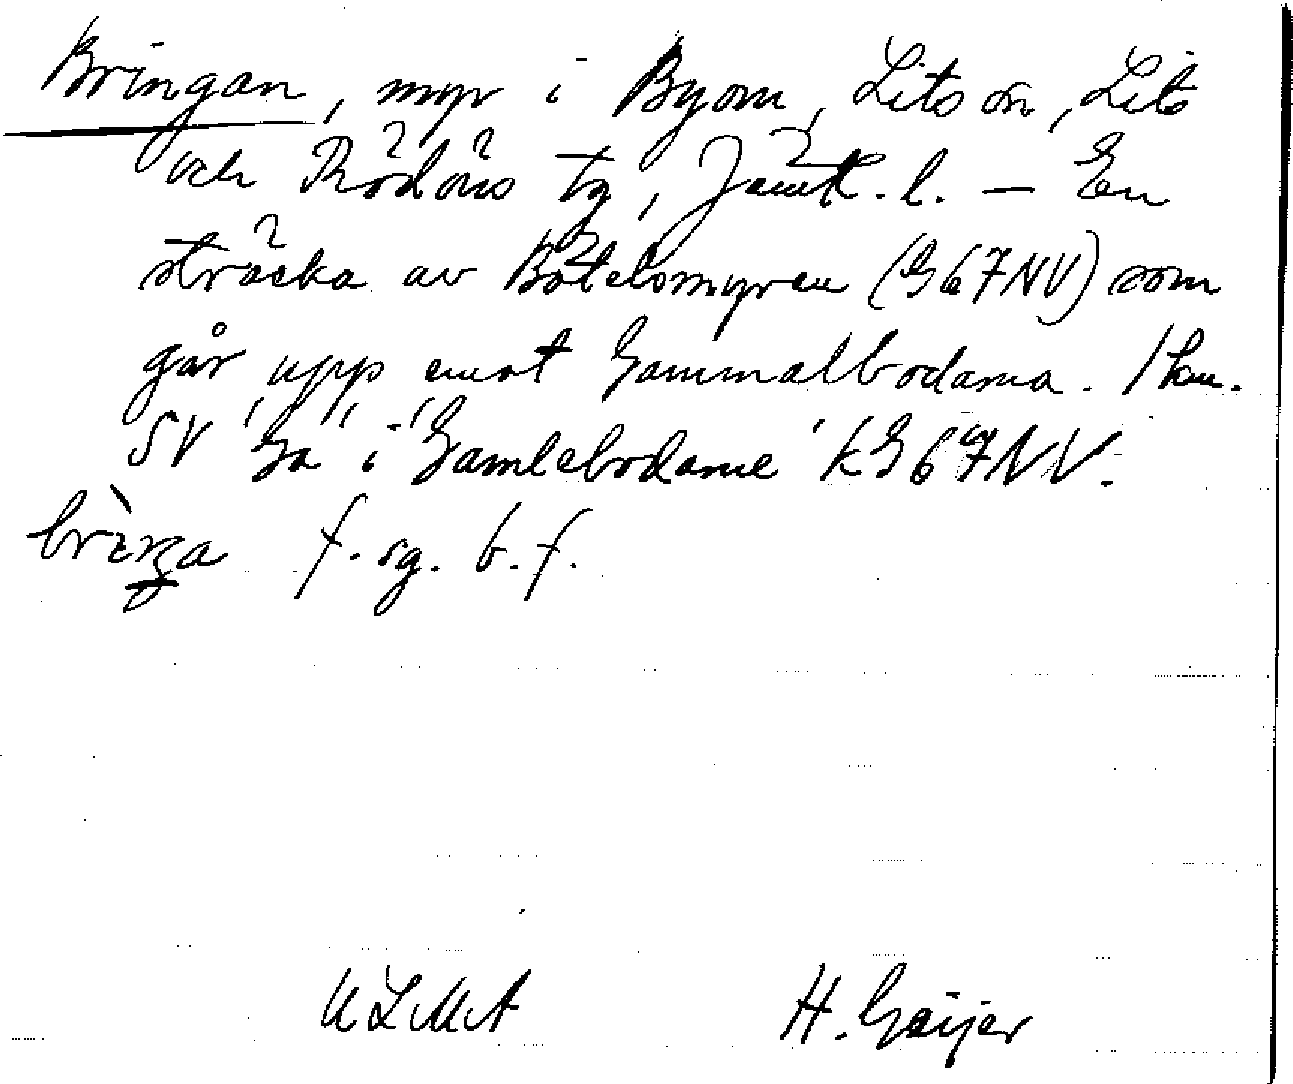 Bringan, myr i Byom, Lits sn, Lits
och Rödöns tg, Jämtl. l. — En
sträcka av Bötelsmyren (G67NV) som
går upp emot Gammalbodarna. 1 km.
SV 'Ga' i 'Gamlebodarne' kG67NV.
brìŋa f. sg. b. f.
ULMA H. Geijer